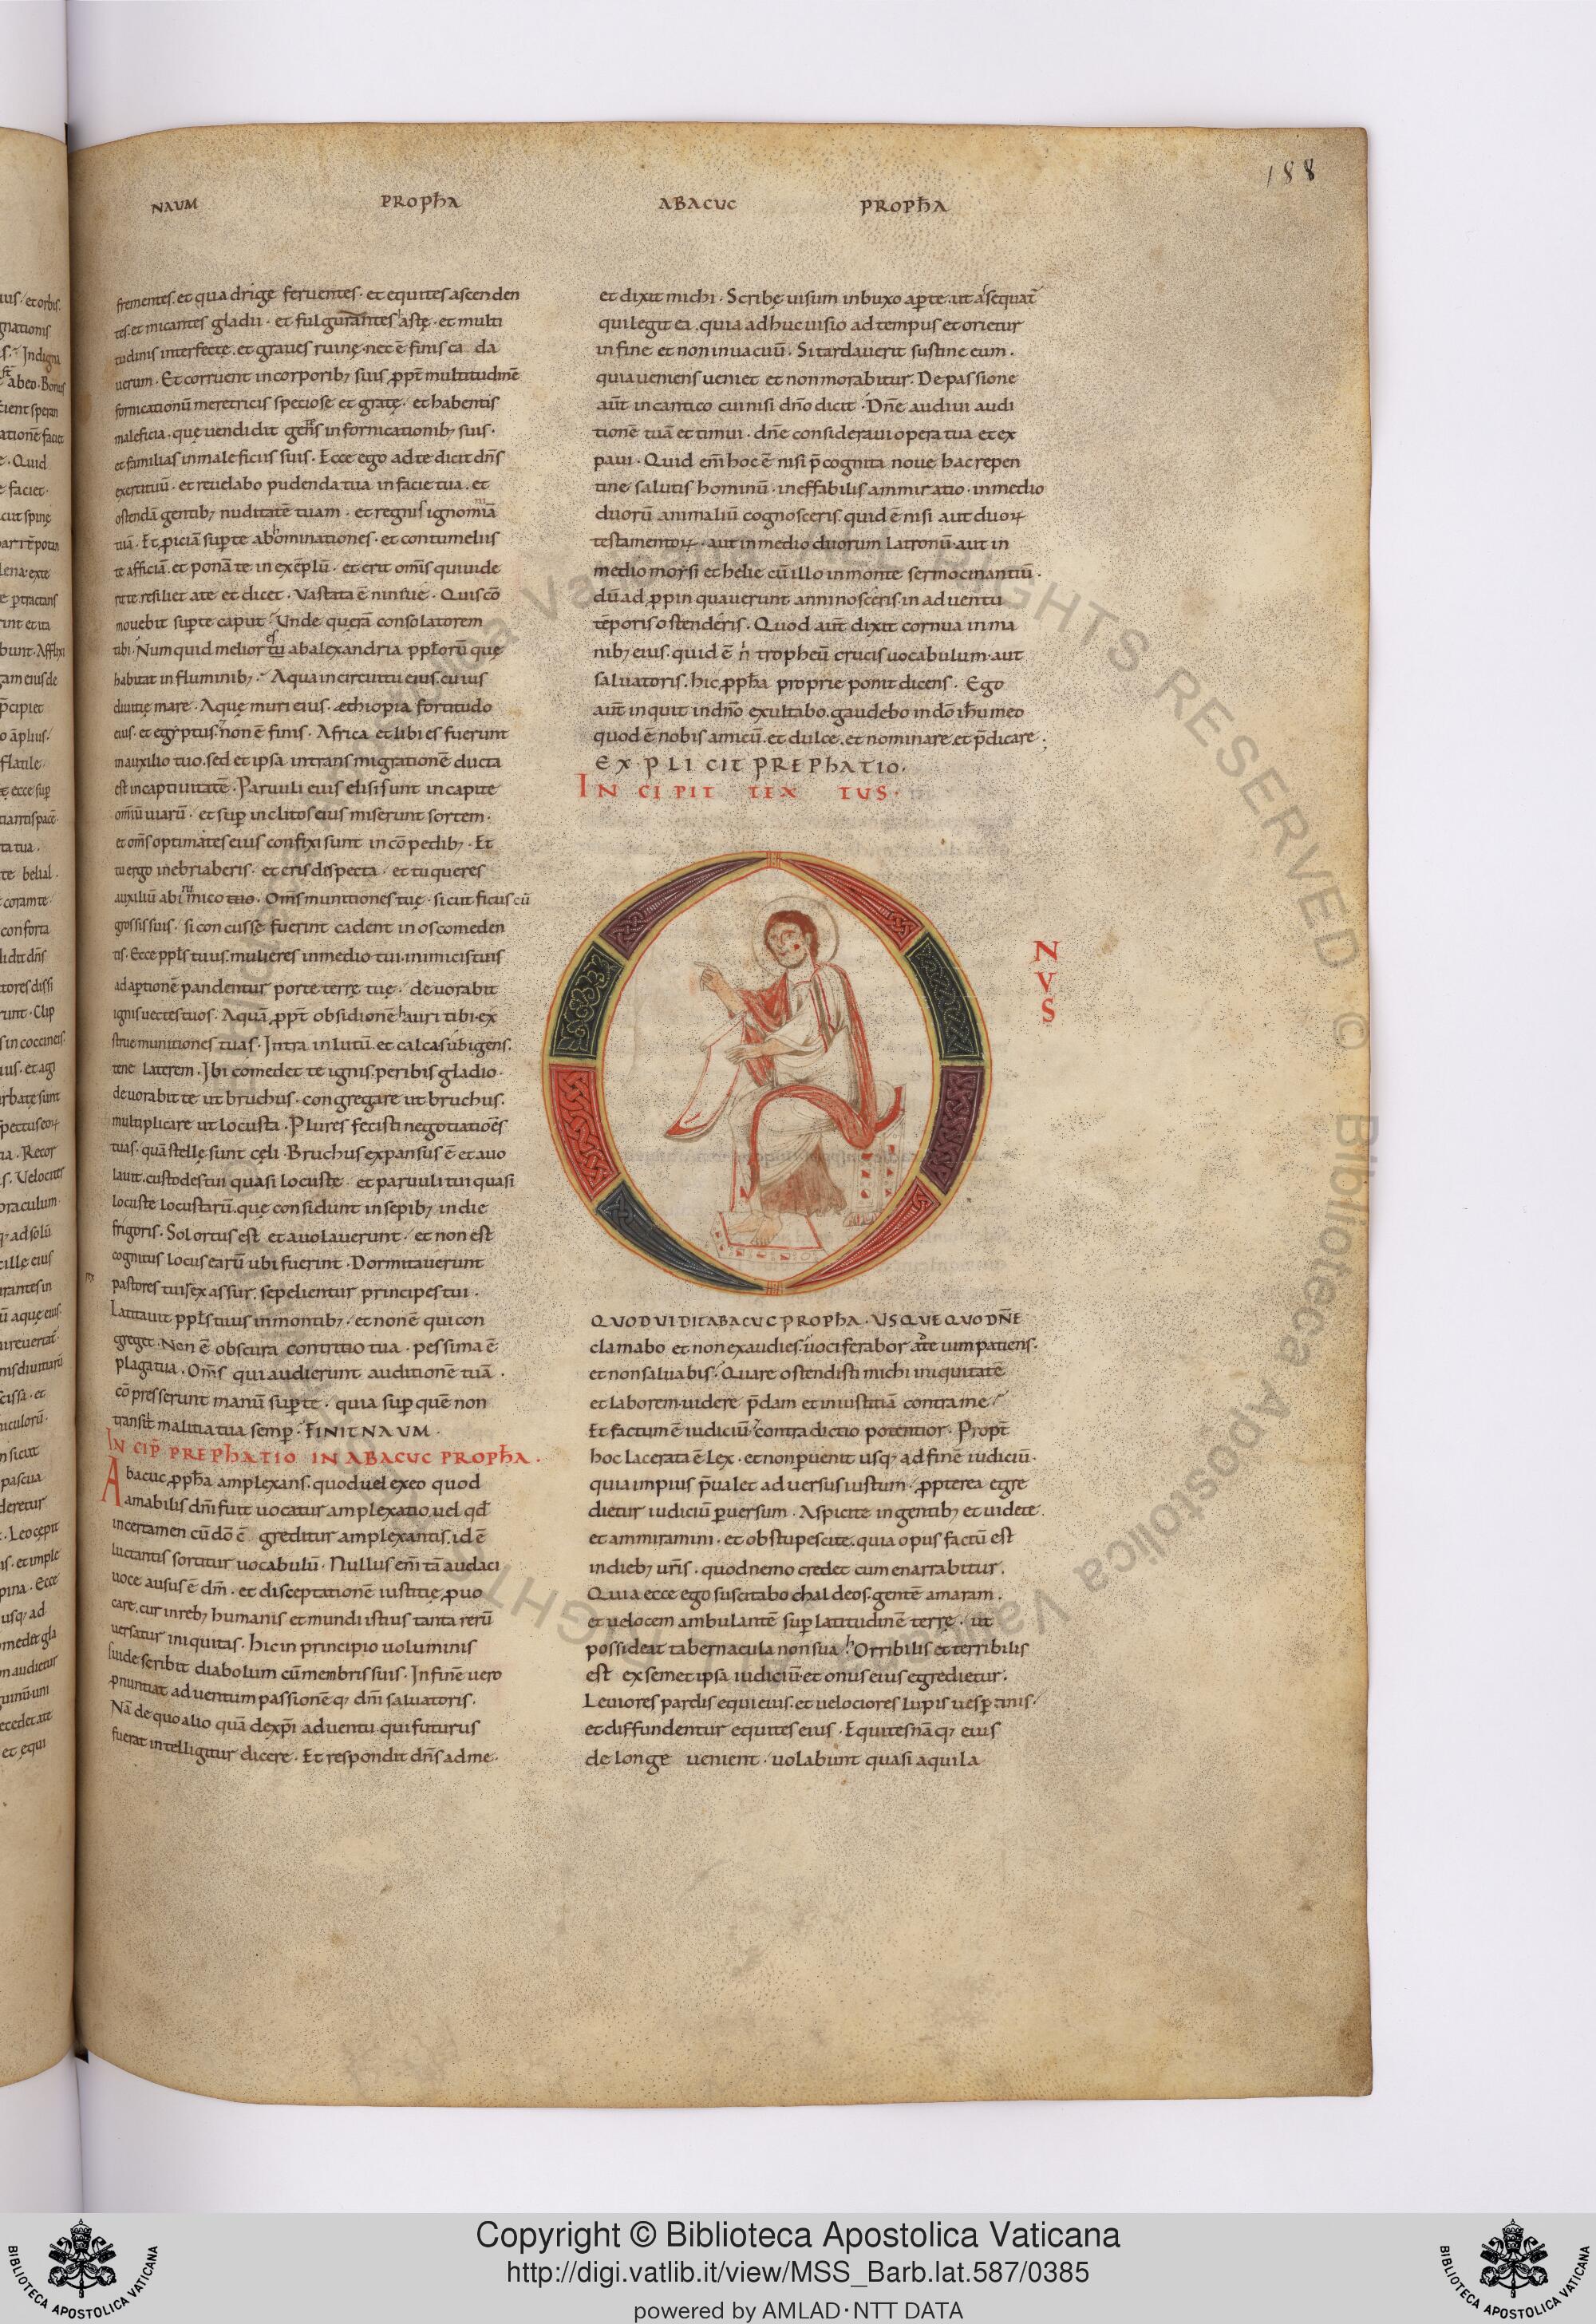 188
NAUM PROPħA ABACUC PROPħA
frementes. et quadrigę feruentes. et equites ascenden
tes. et micantes gladii. et fulgurantes hastę. et multi
tudinis interfectę. et graues ruinę. nec ē finis ca da
uerum. Et corruent in corporibꝫ suis ꝓpt̄ multitudinē
fornicationū meretricis speciose et gratę. et habentis
maleficia. quę uendidit gentes in fornicationibꝫ suis.
et familias in maleficiis suis. Ecce ego ad te dicit dn̄s
exercituū. et reuelabo pudenda tua in facie tua. et
ostendā gentibꝫ nuditatē tuam. et regnis ignominiā
tuā. Et ꝓiciā suꝑ te abhominationes. et contumeliis
te afficiā. et ponā te in exēplū. et erit om̄is qui uide
rit te resiliet a te et dicet. Vastata ē niniue. Quis cō
mouebit suꝑ te caput? Unde querā consolatorem
tibi. Numquid melior es tu ab alexandria pplorū quę
habitat in fluminibꝫ? Aqua in circuitu eius. cuius
diuitię mare. Aquę muri eius. aethiopia fortitudo
eius. et egyptus. et non ē finis. Africa et libies fuerunt
in auxilio tuo. sed et ipsa in transmigrationē ducta
est in captiuitatē. Paruuli eius elisi sunt in capite
om̄iū uiarū. et suꝑ inclitos eius miserunt sortem.
et om̄s optimates eius confixi sunt in cōpedibꝫ. Et
tu ergo inebriaberis. et eris dispecta. et tu queres
auxiliū ab inimico tuo. Om̄s munitiones tuę. sicut ficus cū
grossis suis. si concussę fuerint cadent in os comeden
tis. Ecce ppl̄s tuus. mulieres in medio tui. inimicis tuis
adaꝑtionē pandentur porte terrę tuę. deuorabit
ignis uectes tuos. Aquā ꝓpt̄ obsidionē hauri tibi. ex
strue munitiones tuas. Intra in lutū. et calca subigens.
tene laterem. Ibi comedet te ignis. peribis gladio.
deuorabit te ut bruchus. congregare ut bruchus.
multiplicare ut locusta. Plures fecisti negotiationēs
tuas. quā stellę sunt cęli. Bruchus expansus ē et auo
lauit. custodes tui quasi locustę. et paruuli tui quasi
locuste locustarū. quę considunt in sepibꝫ in die
frigoris. Sol ortus est et auolauerunt. et non est
cognitus locus earū ubi fuerint. Dormitauerunt
pastores tui rex assur. sepelientur principes tui.
Latitauit ppl̄s tuus in montibꝫ. et non ē qui con
greget. Non ē obscura contritio tua. pessima ē
plaga tua. Om̄s qui audierunt auditionē tuā.
cōpresserunt manū suꝑ te. quia suꝑ quē non
transiit malitia tua semꝑ. FINIT NAUM.
INCIP̄ PREPHATIO IN ABACUC PROPħA.
Abacuc ꝓpħa amplexans. quod uel ex eo quod
amabilis dn̄i fuit uocatur amplexatio. uel qđ
in certamen cū dō ē greditur amplexantis. id ē
luctantis sortitur uocabulū. Nullus em̄ tā audaci
uoce ausus ē dm̄. et disceptationē iustitię ꝓuo
care. cur in rebꝫ humanis et mundi istius tanta rerū
uersatur iniquitas. hic in principio uoluminis
sui describit diabolum cū membris suis. In finē uero
ꝓnuntiat aduentum passionēqꝫ dn̄i saluatoris.
Nā de quo alio quā de xp̄i aduentu qui futurus
fuerat intelligitur dicere. Et respondit dn̄s ad me.
et dixit michi. Scribę uisum in buxo aꝑte. ut assequat̄
qui legit ea. quia adhuc uisio ad tempus et orietur
in fine et non in uacuū. Si tardauerit sustine eum.
quia ueniens ueniet et non morabitur. De passione
aūt in cantico cui nisi dn̄o dicit. Dn̄e audiui audi
tionē tuā et timui. dn̄e consideraui opera tua et ex
paui. Quid em̄ hoc ē nisi p̄cognita noue hac repen
tine salutis hominū. ineffabilis ammiratio. in medio
duorū animaliū cognosceris. quid ē nisi aut duoꝝ
testamentoꝝ. aut in medio duorum latronū. aut in
medio moysi et helie cū illo in monte sermocinantiū.
dū adꝓpinquauerunt anni nosceris. in aduentu
tēporis ostenderis. Quod aūt dixit cornua in ma
nibꝫ eius. quid ē n̄ tropheū crucis uocabulum. aut
saluatoris. hic ꝓpħa proprie ponit dicens. Ego
aūt inquit in dn̄o exultabo. gaudebo in dō ih̄u meo
quod ē nobis amicū. et dulce. et nominare. et p̄dicare;
EXPLICIT PREPHATIO.
INCIPIT TEXTUS.
O
N
V
S
QUOD VIDIT ABACUC PROPħA. USQUE QUO DN̄E
clamabo et non exaudies. uociferabor ad te uim patiens.
et non saluabis? Quare ostendisti michi iniquitatē
et laborem. uidere p̄dam et iniustitiā contra me?
Et factum ē iudiciū. et contradictio potentior. Propt̄
hoc lacerata ē lex. et non ꝑuenit usqꝫ ad finē iudiciū.
quia impius p̄ualet aduersus iustum. ꝓpterea egre
dietur iudiciū ꝑuersum. Aspicite in gentibꝫ et uidete.
et ammiramini. et obstupescite. quia opus factū est
in diebꝫ ur̄is. quod nemo credet cum enarrabitur.
Quia ecce ego suscitabo chaldeos. gentē amaram.
et uelocem ambulantē suꝑ latitudinē terrę. ut
possideat tabernacula non sua. hOrribilis et terribilis
est ex semet ipsa iudiciū et onus eius egredietur.
Leuiores pardis equi eius. et uelociores lupis uesꝑtinis.
et diffundentur equites eius. Equites nāqꝫ eius
de longe uenient. uolabunt quasi aquila
Copyright © Biblioteca Apostolica Vaticana
http://digi.vatlib.it/view/MSS_Barb.lat.587/0385
powered by AMLAD·NTT DATA
BIBLIOTECA APOSTOLICA VATICANA
BIBLIOTECA APOSTOLICA VATICANA